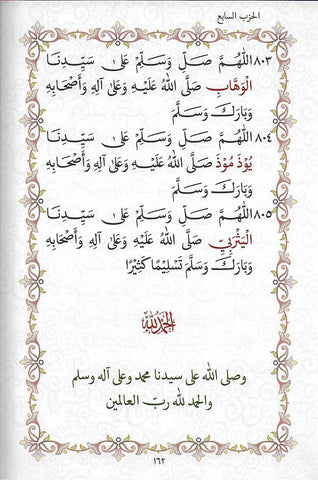 الحزب السابع
٨٠٣ اللَّهُمَّ صَلِّ وَسَلِّمْ عَلَى سَيِّدِنَا
الْوَهَّابِ صَلَّى اللهُ عَلَيْهِ وَعَلَى آلِهِ وَأَصْحَابِهِ
وَبَارَكَ وَسَلَّمَ
٨٠٤ اللَّهُمَّ صَلِّ وَسَلِّمْ عَلَى سَيِّدِنَا
يُوْذ مُوْذ صَلَّى اللهُ عَلَيْهِ وَعَلَى آلِهِ وَأَصْحَابِهِ
وَبَارَكَ وَسَلَّمَ
٨٠٥ اللَّهُمَّ صَلِّ وَسَلِّمْ عَلَى سَيِّدِنَا
الْيَثْرِبِيِّ صَلَّى اللهُ عَلَيْهِ وَعَلَى آلِهِ وَأَصْحَابِهِ
وَبَارَكَ وَسَلَّمَ تَسْلِيْمًا كَثِيْرًا
الحمد لله
وصلى الله على سيدنا محمد وعلى آله وسلم
والحمد لله ربّ العالمين
١٦٢